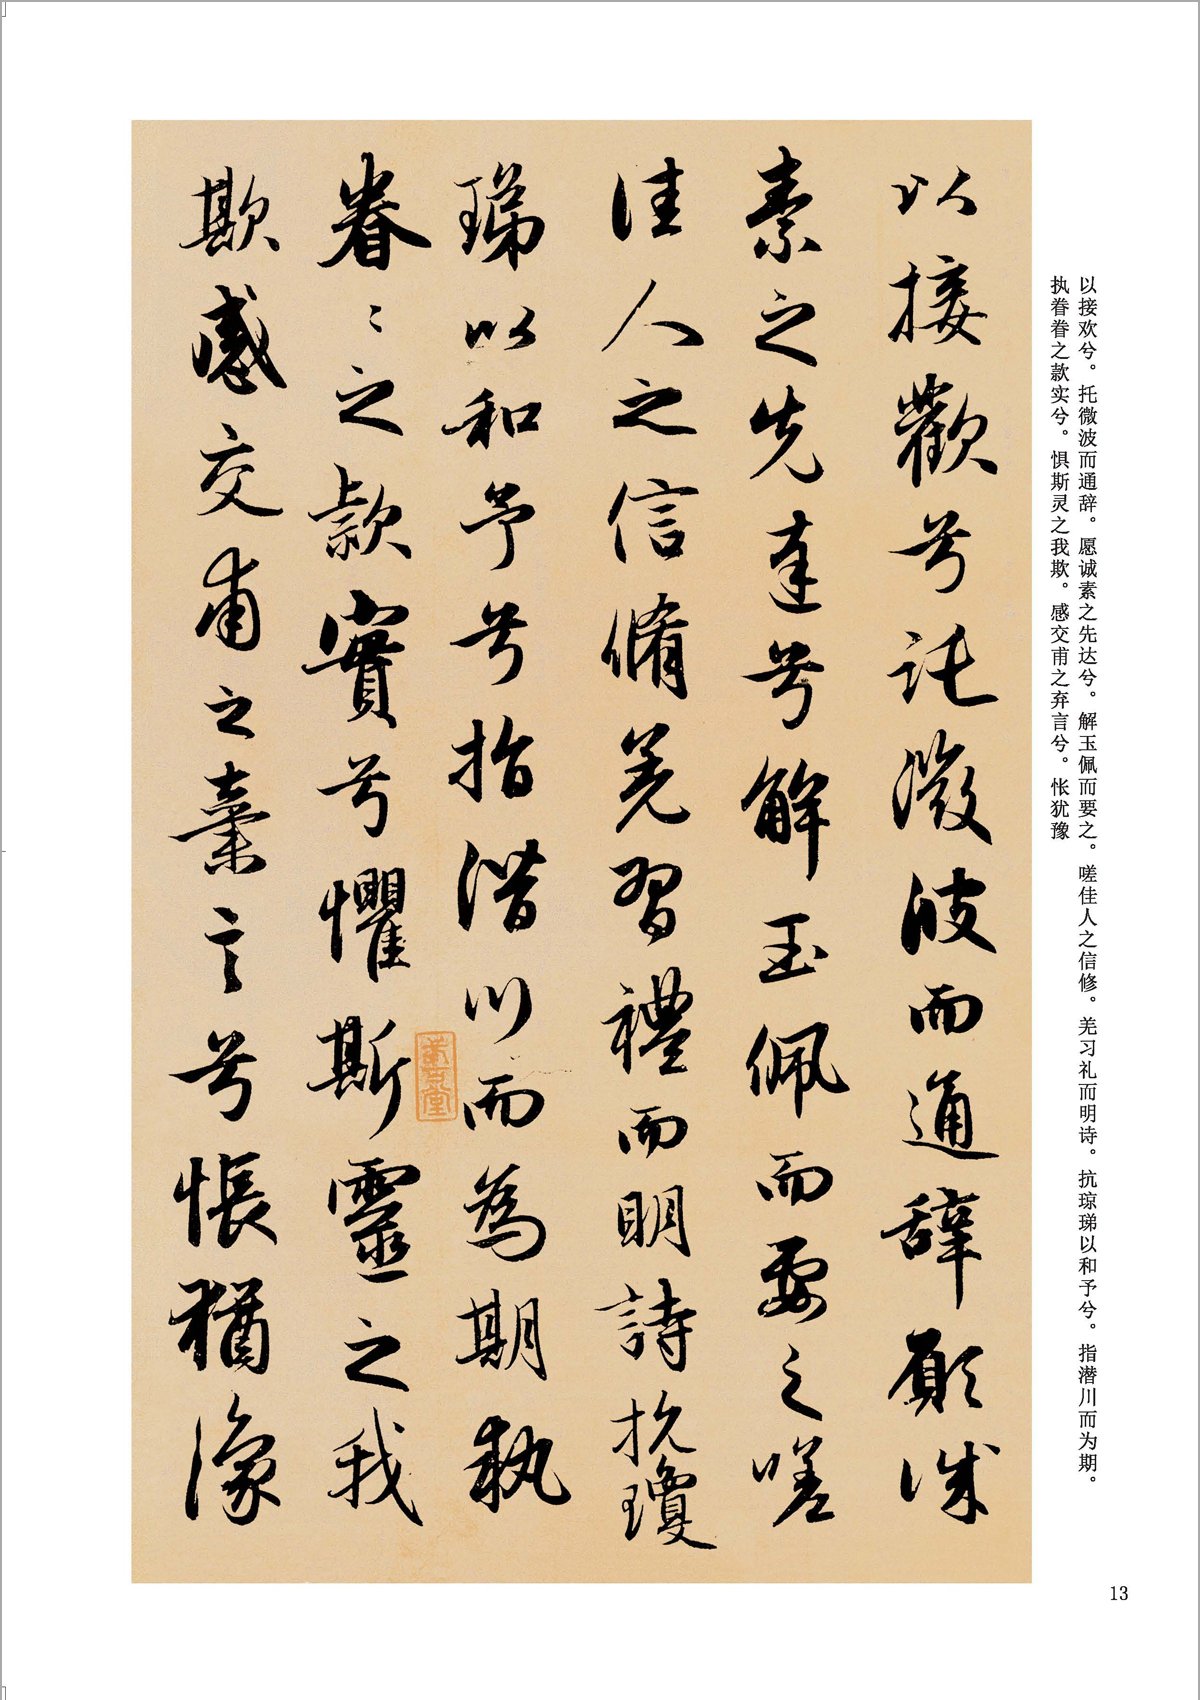 以接欢兮。托微波而通辞。愿诚素之先达兮。解玉佩而要之。嗟佳人之信修。羌习礼而明诗。抗琼珶以和予兮。指潜川而为期。
执眷眷之款实兮。惧斯灵之我欺。感交甫之弃言兮。怅犹豫
以接歡兮託微波而通辞願誠
素之先達兮解玉佩而要之嗟
佳人之信脩羌習禮而明詩抗瓊
珶以和予兮指潜川而為期執
眷〻之款實兮懼斯靈之我
欺感交甫之棄言兮悵猶豫
13